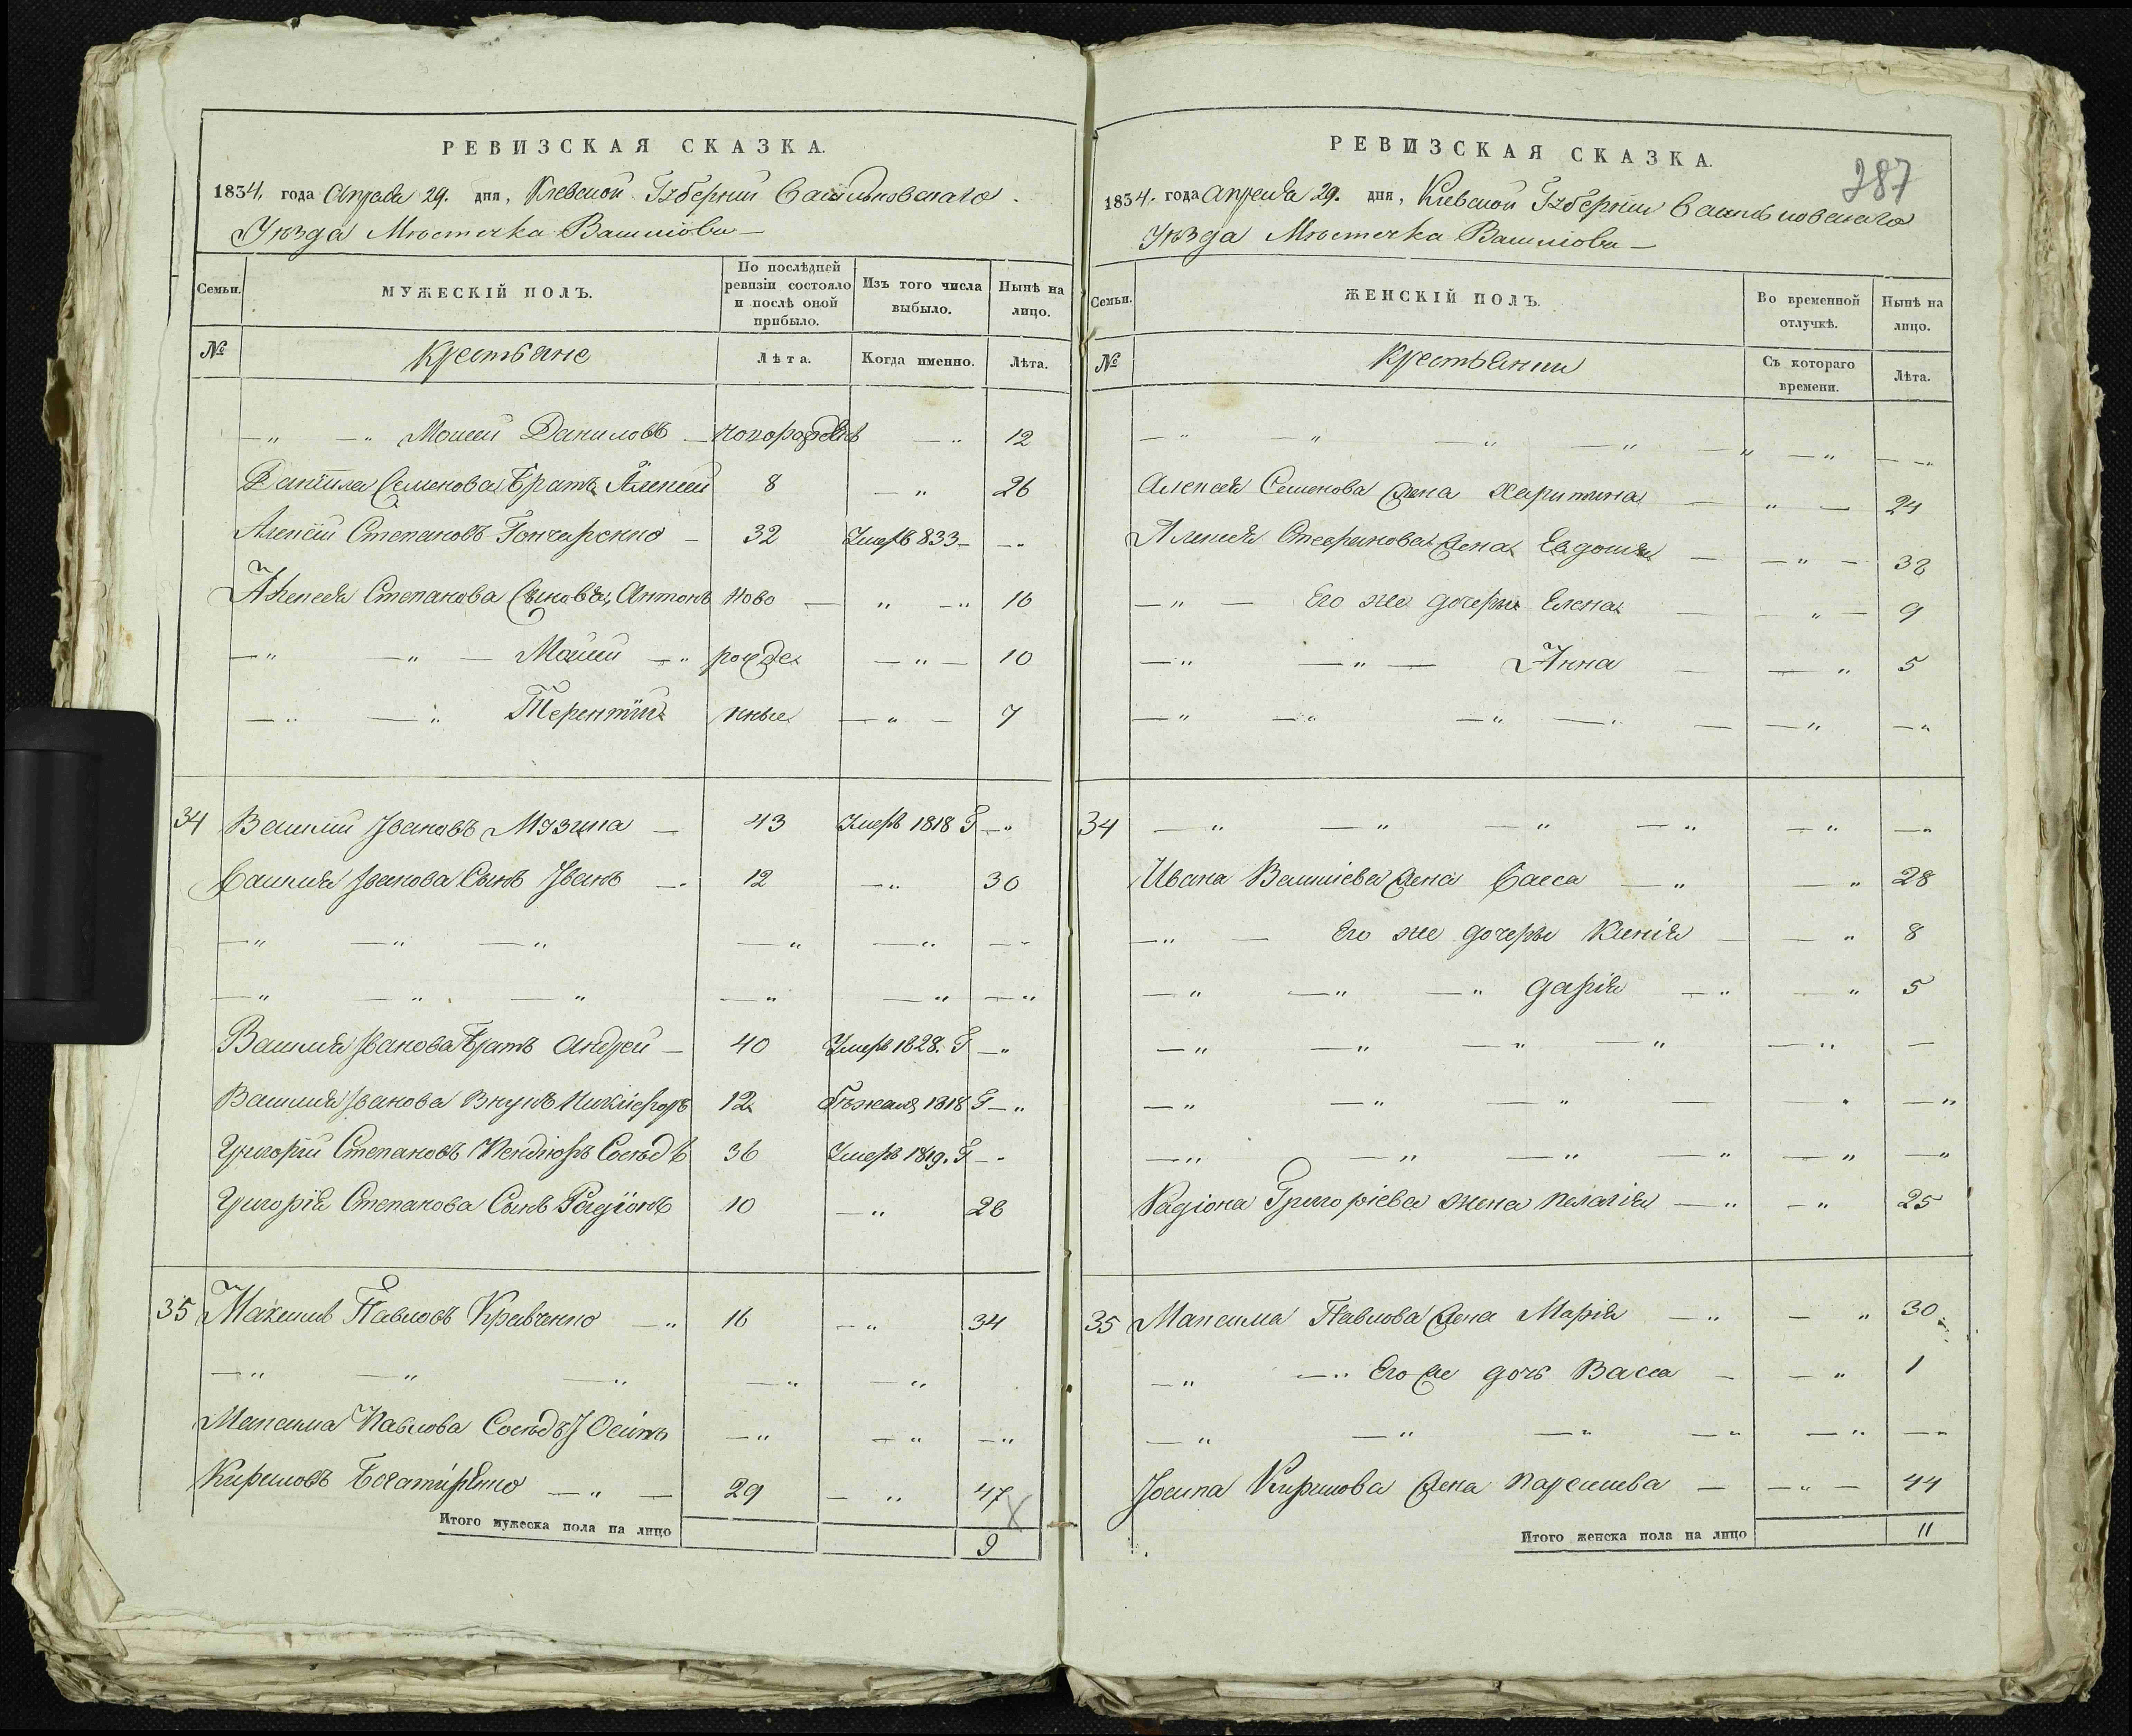 РЕВИЗСКАЯ СКАЗКА.
1834, года Апреля 29. дня, Киевской Губернии Васильковскаго
Уѣзда Мѣстечка Василіова
Семьи.
МУЖЕСКІЙ ПОЛЪ.
По послѣдней ревизіи состояло и послѣ оной прибыло.
Изъ того числа выбыло.
Нынѣ на лицо.
№
Крестьяне
Лѣта.
Когда именно.
Лѣта.
— „ — „ Мойсей Даниловъ — новорожден — „ 12
Даніила Семенова Братъ Алексей 8 — „ 26
Алексій Степановъ Гончаренко — 32 Умеръ 833 — — „
Алексея Степанова Сыновья, Антонъ Ново — „ — „ 16
— „ — „ — Мойсей — „ рожде — „ — 10
— „ — „ Терентій нные — „ — 7
34 Василій Ивановъ Музыка — 43 Умеръ 1818 Г — „
Василія Иванова Сынъ Иванъ — „ 12 — „ 30
— „ — „ — „ — „ — „ — „
— „ — „ — „ — „ „ — „
Василія Иванова Братъ Андрей — 40 Умеръ 1828. Г — „
Василия Иванова Внукъ Никифоръ 12 Бѣжалъ 1818 Г — „
Григорій Степановъ Сосѣдъ 36 Умеръ 1819. Г — „
Григорія Степанова Сынъ Радіонъ 10 — „ 26
35 Максимъ Павловъ Кравченко — „ 16 — „ 34
— „ — „ — „ — „ — „
Максима Павлова Сосѣдъ Іосипъ — „ — „ — „
Кириловъ Богатиренко — „ — 29 — „ 47
Итого мужеска пола на лицо 9
РЕВИЗСКАЯ СКАЗКА.
287
1834. года Апреля 29. дня, Киевской Губерніи Васильковскаго
Уѣзда Мѣстечка Василіова —
Семьи.
ЖЕНСКІЙ ПОЛЪ.
Во временной отлучкѣ.
Нынѣ на лицо.
№
Крестьянки
Съ котораго времени.
Лѣта.
— „ — „ — „ — „ — „ — „ — „
Алексея Семенова жена Харитина — „ — 24
Алексея Степанова жена Евдокия — — „ — 38
— „ — Его же дочеры Елена — — „ — 9
— „ — „ — Анна — — „ 5
— „ — „ — „ — „ — — „ — „
34 — „ — „ — „ — „ — „ — „
Ивана Василіева жена Васса — „ — „ 28
— „ — Его же дочеры Ксенія — — „ 8
— „ — „ — „ Дарія — „ — „ 5
— „ — „ — „ — „ — „ —
— „ — „ — „ — — „ — „
— „ — „ — „ — „ — „ — „
Радіона Григоріева жена Пелагія — „ — „ 25
35 Максима Павлова жена Марія — „ — „ 30
— „ — „ Его же дочь Васса — — „ 1
— „ — „ — „ — „ — „ — „
Іосипа Кирилова жена — — „ — 44
Итого женска пола на лицо 11